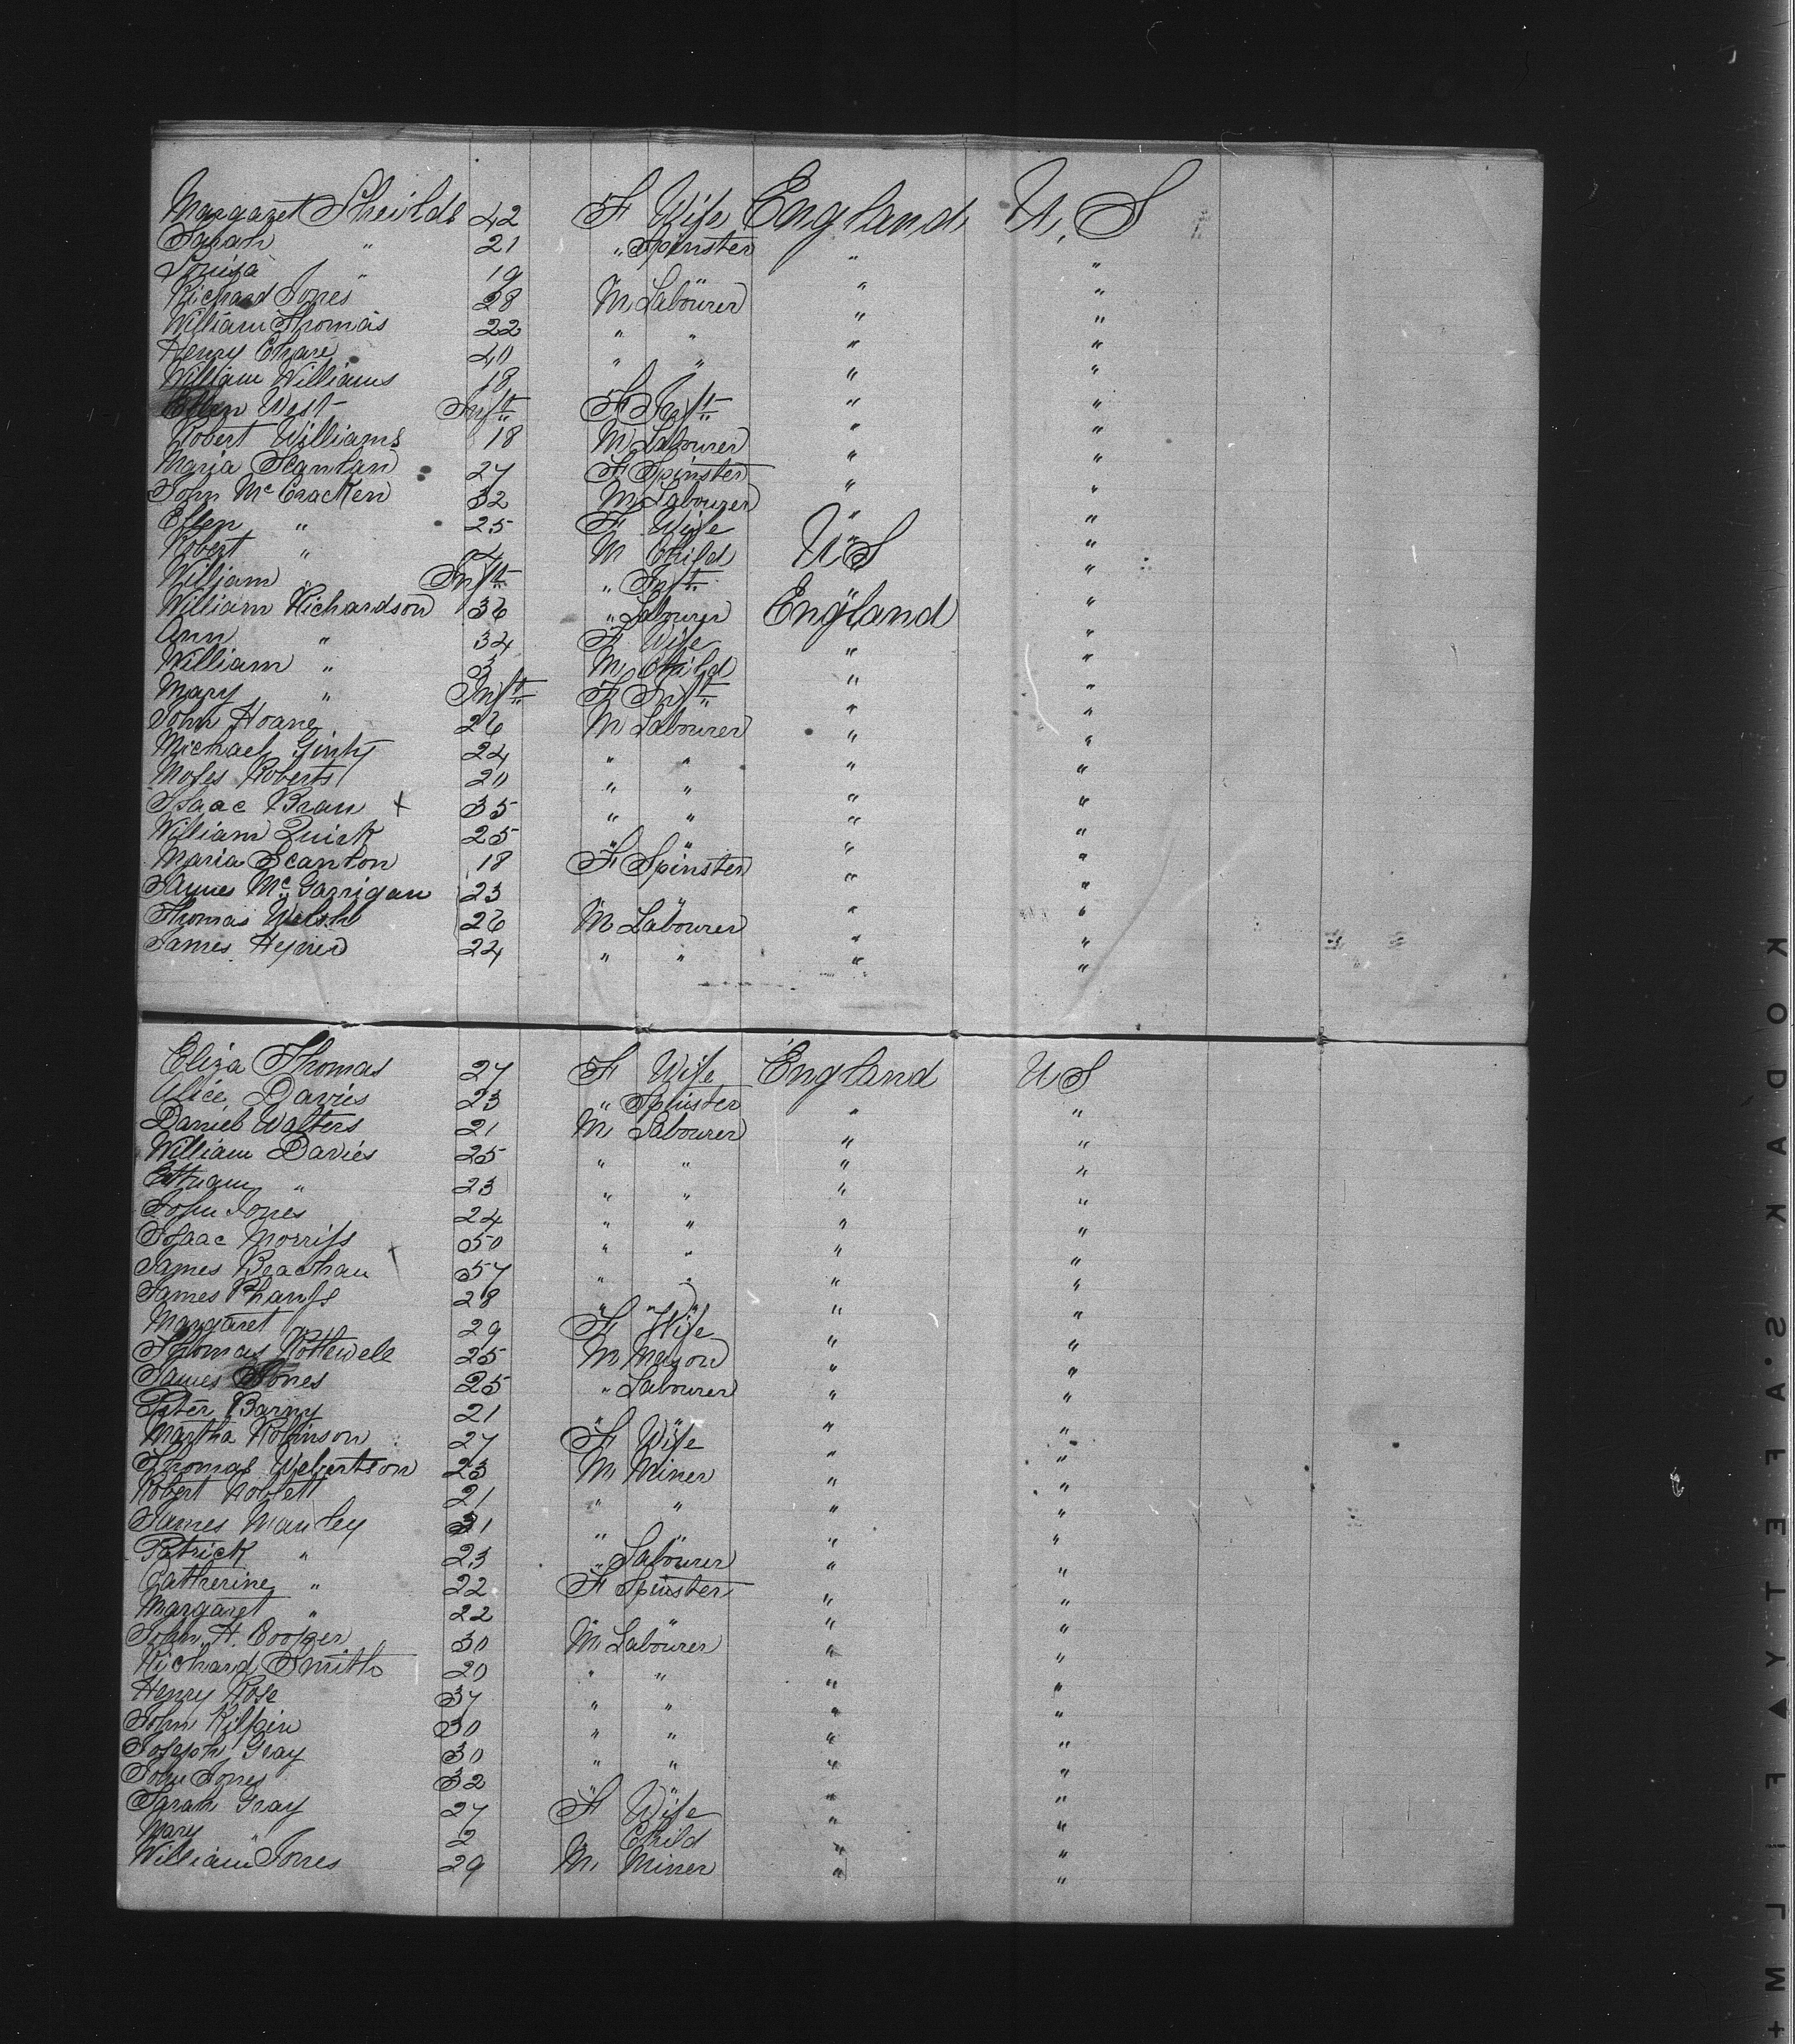 Margaret Sheilds 42 F Wife England U.S
Sarah " 21 " Spinster " "
Louiza " 19 " " " "
Richard Jones 28 M Labourer " "
William Thomas 22 " " " "
Henry 40 " " " "
William Williams 18 " " " "
Ellen West Inft F Inft " "
Robert Williams 18 M Labourer " "
Maria Scanlan 27 F Spinster " "
John McCracken 32 M Labourer " "
Ellen " 25 F Wife " "
Robert " M Child U S "
William " Inft " Inft " "
William Richardson 36 " Labourer England "
Ann " 34 F Wife " "
William " 3 M Child " "
Mary " Inft F Inft " "
John Hoane 26 M Labourer " "
Michael 24 " " " "
Moses Roberts 20 " " " "
Isaac Bran x 35 " " " "
William Quirk 25 " " " "
Maria Scanlon 18 F Spinster " "
James McGarrigan 23 " " " "
Thomas Welsh 26 M Labourer " "
James 24 " " " "
Eliza Thomas 27 F Wife England U S
Alice Davies 23 " Spinster " "
Daniel Walters 21 M Labourer " "
William Davies 25 " " " "
" 23 " " " "
John Jones 24 " " " "
Isaac Morriss 50 " " " "
James 57 " " " "
James 28 " " " "
Margaret " 29 F Wife " "
Thomas Rothewell 25 M Mason " "
James Jones 25 " Labourer " "
Peter Barny 21 " " " "
Martha Robinson 27 F Wife " "
Thomas 23 M Miner " "
Robert 21 " " " "
James Manley 31 " " " "
Patrick " 23 " Labourer " "
Catherine " 22 F Spinster " "
Margaret " 22 " " " "
John H. Cooper 30 M Labourer " "
Richard Smith 20 " " " "
Henry Rose 37 " " " "
John Kilpin 30 " " " "
Joseph Gray 30 " " " "
John Jones 32 " " " "
Sarah Gray 27 F Wife " "
Mary " 2 Child " "
William Jones 29 M Miner " "
KODAK S.A.F.E.T.Y FILM +